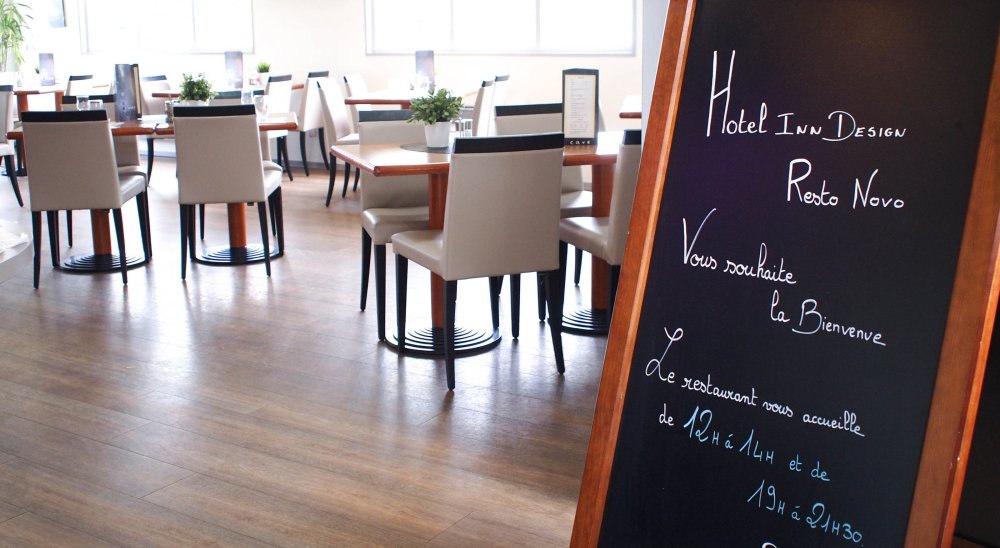 Hotel Inn Design
Resto Novo
Vous souhaite
la Bienvenue
Le restaurant vous accueille
de 12H à 14H et de
19H à 21H30
cave